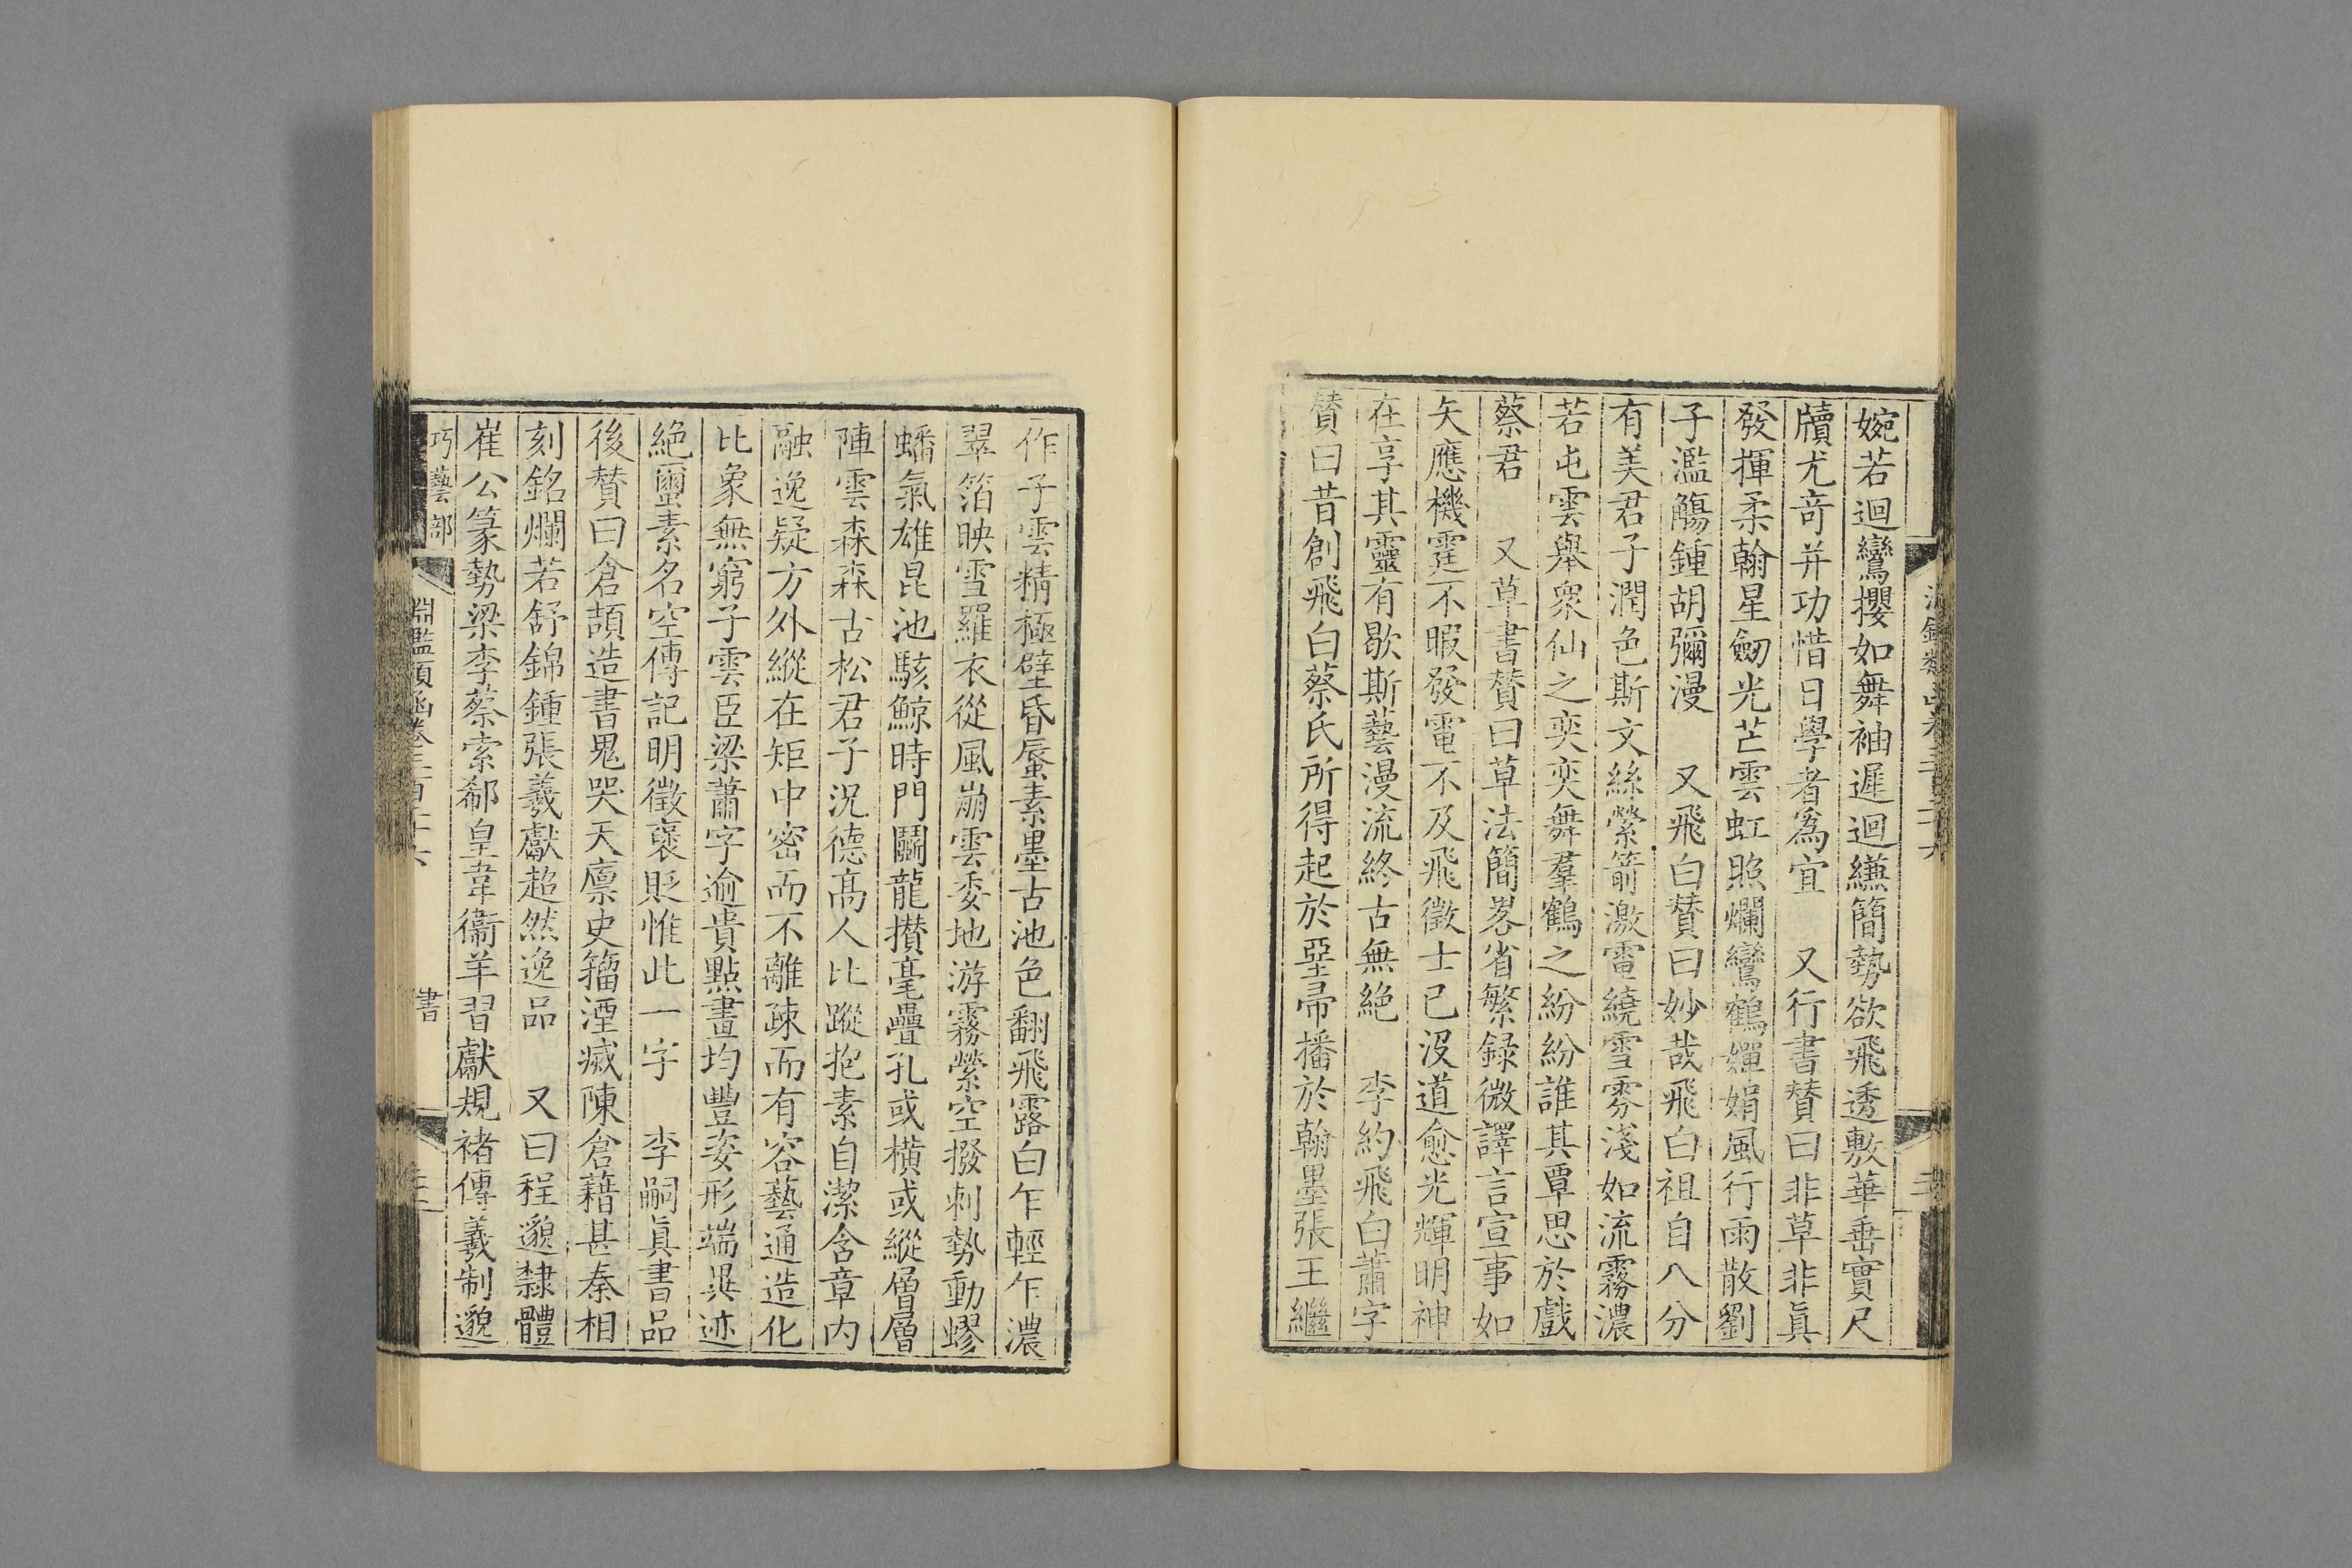 婉若迴鸞攖如舞袖遲迴縑簡勢欲飛透敷華垂實尺
牘尤竒并功惜日學者爲宜　又行書賛曰非草非眞
發揮柔翰星劒光芒雲虹照爛鸞鶴嬋娟風行雨散劉
子濫觴鍾胡彌漫　又飛白賛曰妙哉飛白祖自八分
有美君子潤色斯文絲縈箭激電繞雪雰淺如流霧濃
若屯雲舉衆仙之奕奕舞羣鶴之紛紛誰其覃思於戲
蔡君　又草書賛曰草法簡畧省繁録微譯言宣事如
矢應機霆不暇發電不及飛徵士已沒道愈光輝明神
在享其靈有歇斯藝漫流終古無絶　李約飛白蕭字
賛曰昔創飛白蔡氏所得起於堊帚播於翰墨張王繼
作子雲精極壁昏蜃素墨古池色翻飛露白乍輕乍濃
翠箔映雪羅衣從風崩雲委地游霧縈空撥刺勢動蟉
蟠氣雄昆池駭鯨時門鬬龍攢毫疊孔或横或縱層層
陣雲森森古松君子況德髙人比蹤抱素自潔含章内
融逸疑方外縱在矩中密而不離疎而有容藝通造化
比象無窮子雲臣梁蕭字逾貴點畫均豐姿形端異迹
絶璽素名空傳記明徵襃貶惟此一字　李嗣眞書品
後賛曰倉頡造書鬼哭天廪史籀湮滅陳倉藉甚秦相
刻銘爛若舒錦鍾張羲獻超然逸品　又曰程邈隸體
崔公篆勢梁李蔡索郗皇韋衞羊習獻規褚傳羲制邈
巧藝部
淵鑑類函卷三百二十六
書